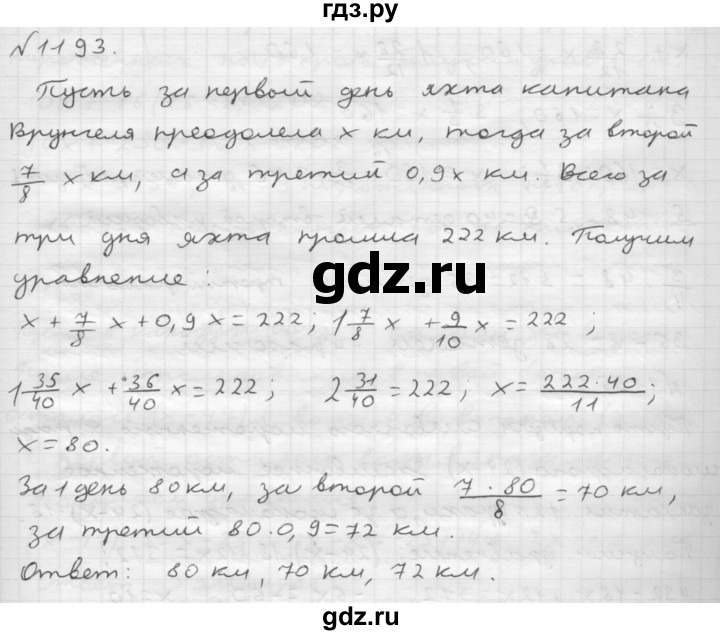 гдз.ру
№1193.
Пусть за первый день яхта капитана
Врунгеля преодолела x км, тогда за второй
7/8 x км, а за третий 0,9x км. Всего за
три дня яхта прошла 222 км. Получим
уравнение:
gdz.ru
x + 7/8 x + 0,9x = 222; 1 7/8 x + 9/10 x = 222;
1 35/40 x + 36/40 x = 222; 2 31/40 = 222; x = 222·40/11;
x = 80.
За 1 день 80 км, за второй 7·80/8 = 70 км,
за третий 80·0,9 = 72 км.
Ответ: 80 км, 70 км, 72 км.
gdz.ru